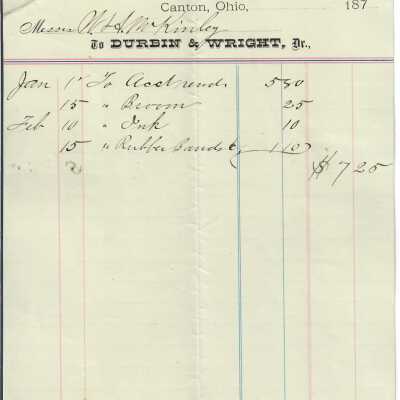 Canton, Ohio, 187
Messrs W & A McKinley
To DURBIN & WRIGHT, Dr.,
Jan 1" To Acct rend. 5 90
15 " Broom 25
Feb 10 " Ink 10
15 " Rubber Bands 1 00
$ 7 25